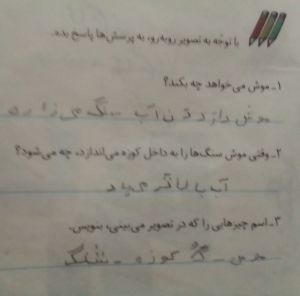 با توجه به تصویر روبه‌رو، به پرسش‌ها پاسخ بده.
۱- موش می‌خواهد چه بکند؟
موش دارد آب سنگ می
۲- وقتی موش سنگ‌ها را به داخل کوزه می‌اندازد، چه می‌شود؟
آب بالاتر می‌یاد
۳- اسم چیزهایی را که در تصویر می‌بینی، بنویس.
کوزه - سنگ